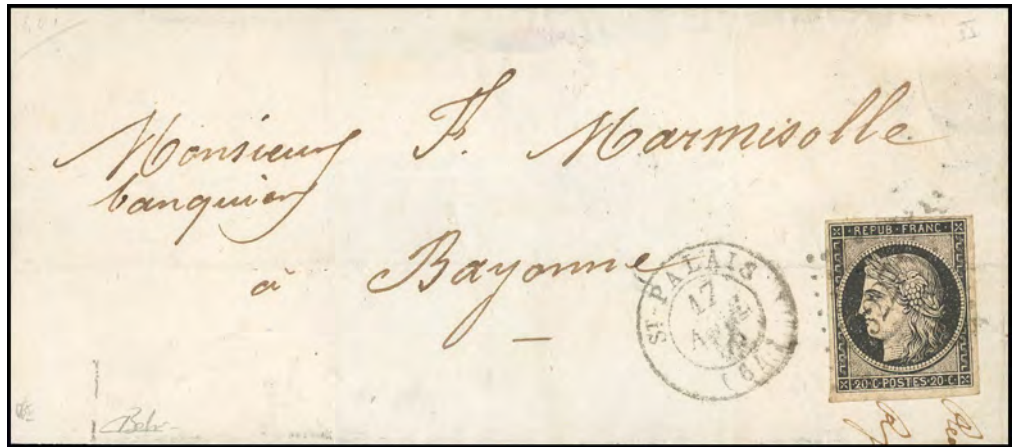 Monsieur F. Marmisolle
banquier
à Bayonne
ST-PALAIS
17
(64)
REPUB·FRANC
20·C·POSTES·20·C